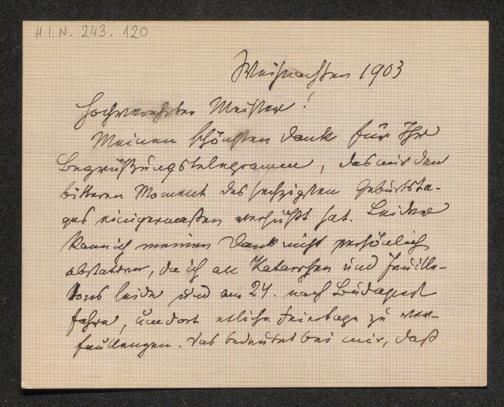 H.I.N. 243.120
Weihnachten 1903
Hochverehrter Meister!
Meinen schönsten Dank für Ihr
Begrüßungstelegramm, das mir den
bitteren Moment des sechzigsten Geburtsta-
ges einigermaßen versüßt hat. Leider
kann ich meinen Dank nicht persönlich
abstatten, da ich an Katarrhen und Feuille-
tons leide und am 24. nach Budapest
fahre, um dort etliche Feiertage zu ver-
faullenzen. Das bedeutet bei mir, daß